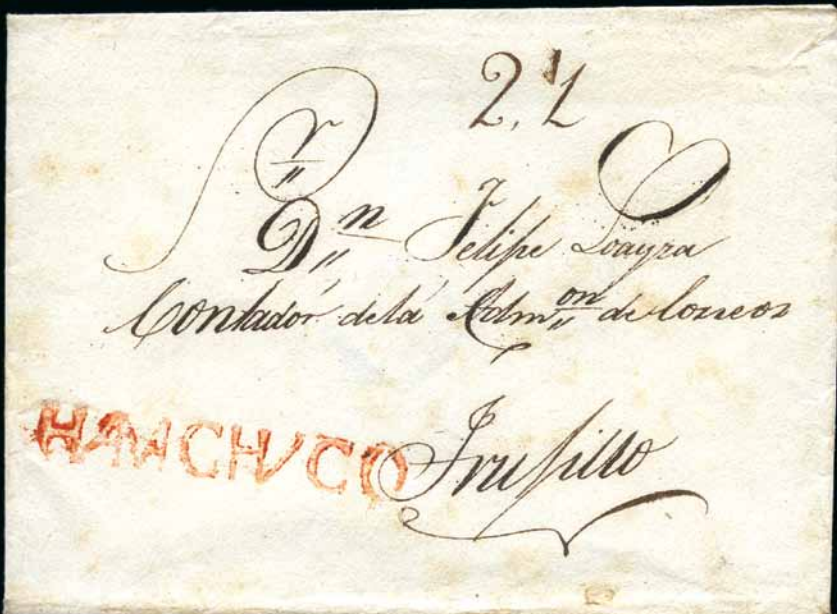 2,1
S.r
D.n Felipe Loayza
Contador de la Adm.on de Correos
HAUCHUCO
Trusillo